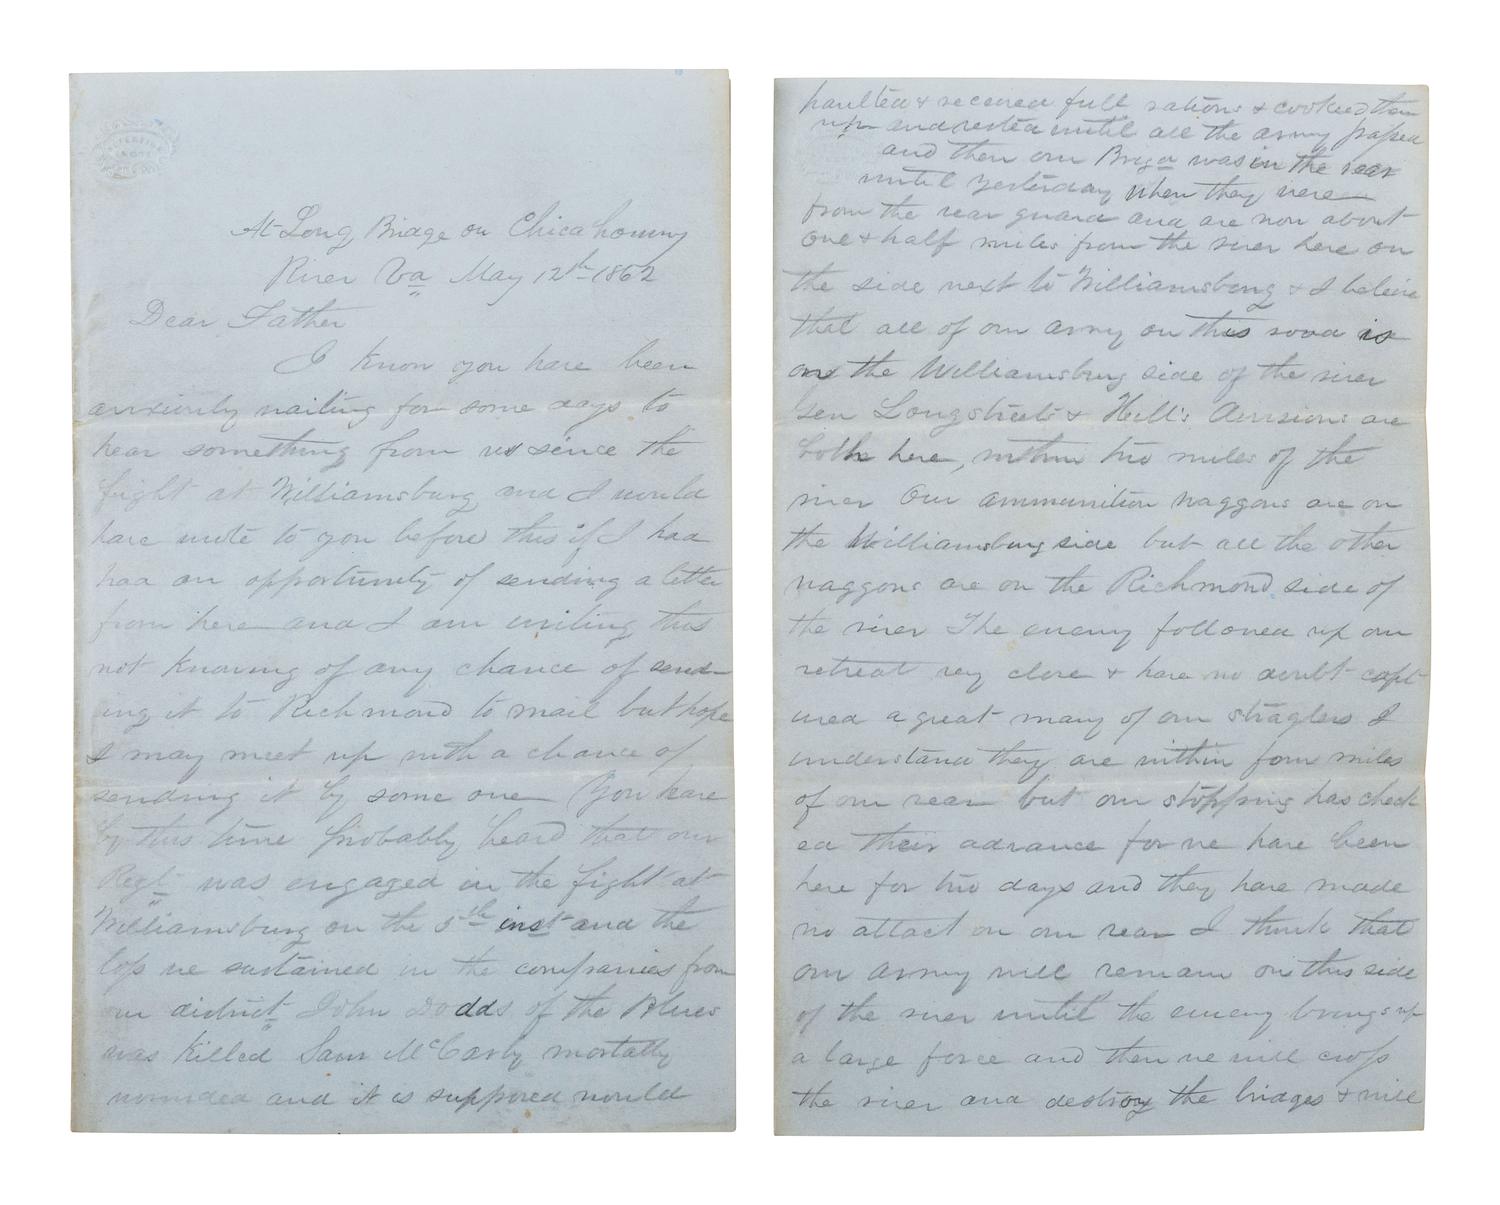 At Long Bridge on Chicahominy
River Va May 12th 1862
Dear Father
I know you have been
anxiously waiting for some days to
hear something from us since the
fight at Williamsburg and I would
have wrote to you before this if I had
had an opportunity of sending a letter
from here and I am writing this
not knowing of any chance of send-
ing it to Richmond to mail but hope
I may meet up with a chance of
sending it by some one You have
by this time probably heard that our
Regt was engaged in the fight at
Williamsburg on the 5th inst and the
loss we sustained in the companies from
our district John Dodds of the Blues
was killed Sam McCarly mortally
wounded and it is supposed would
haulted & received full rations & cooked them
up and rested until all the army passed
and then our Briga was in the rear
until yesterday when they were
from the rear guard and are now about
one & half miles from the river here on
the side next to Williamsburg & I believe
that all of our army on this road is
on the Williamsburg side of the river
Gen Longstreets & Hill's divisions are
both here, within two miles of the
river Our ammunition waggons are on
the Williamsburg side but all the other
waggons are on the Richmond side of
the river The enemy followed up our
retreat very close & have no doubt capt
ured a great many of our straglers I
understand they are within four miles
of our rear but our stopping has check
ed their advance for we have been
here for two days and they have made
no attact on our rear I think that
our army will remain on this side
of the river until the enemy brings up
a large force and then we will cross
the river and destroy the bridges & will